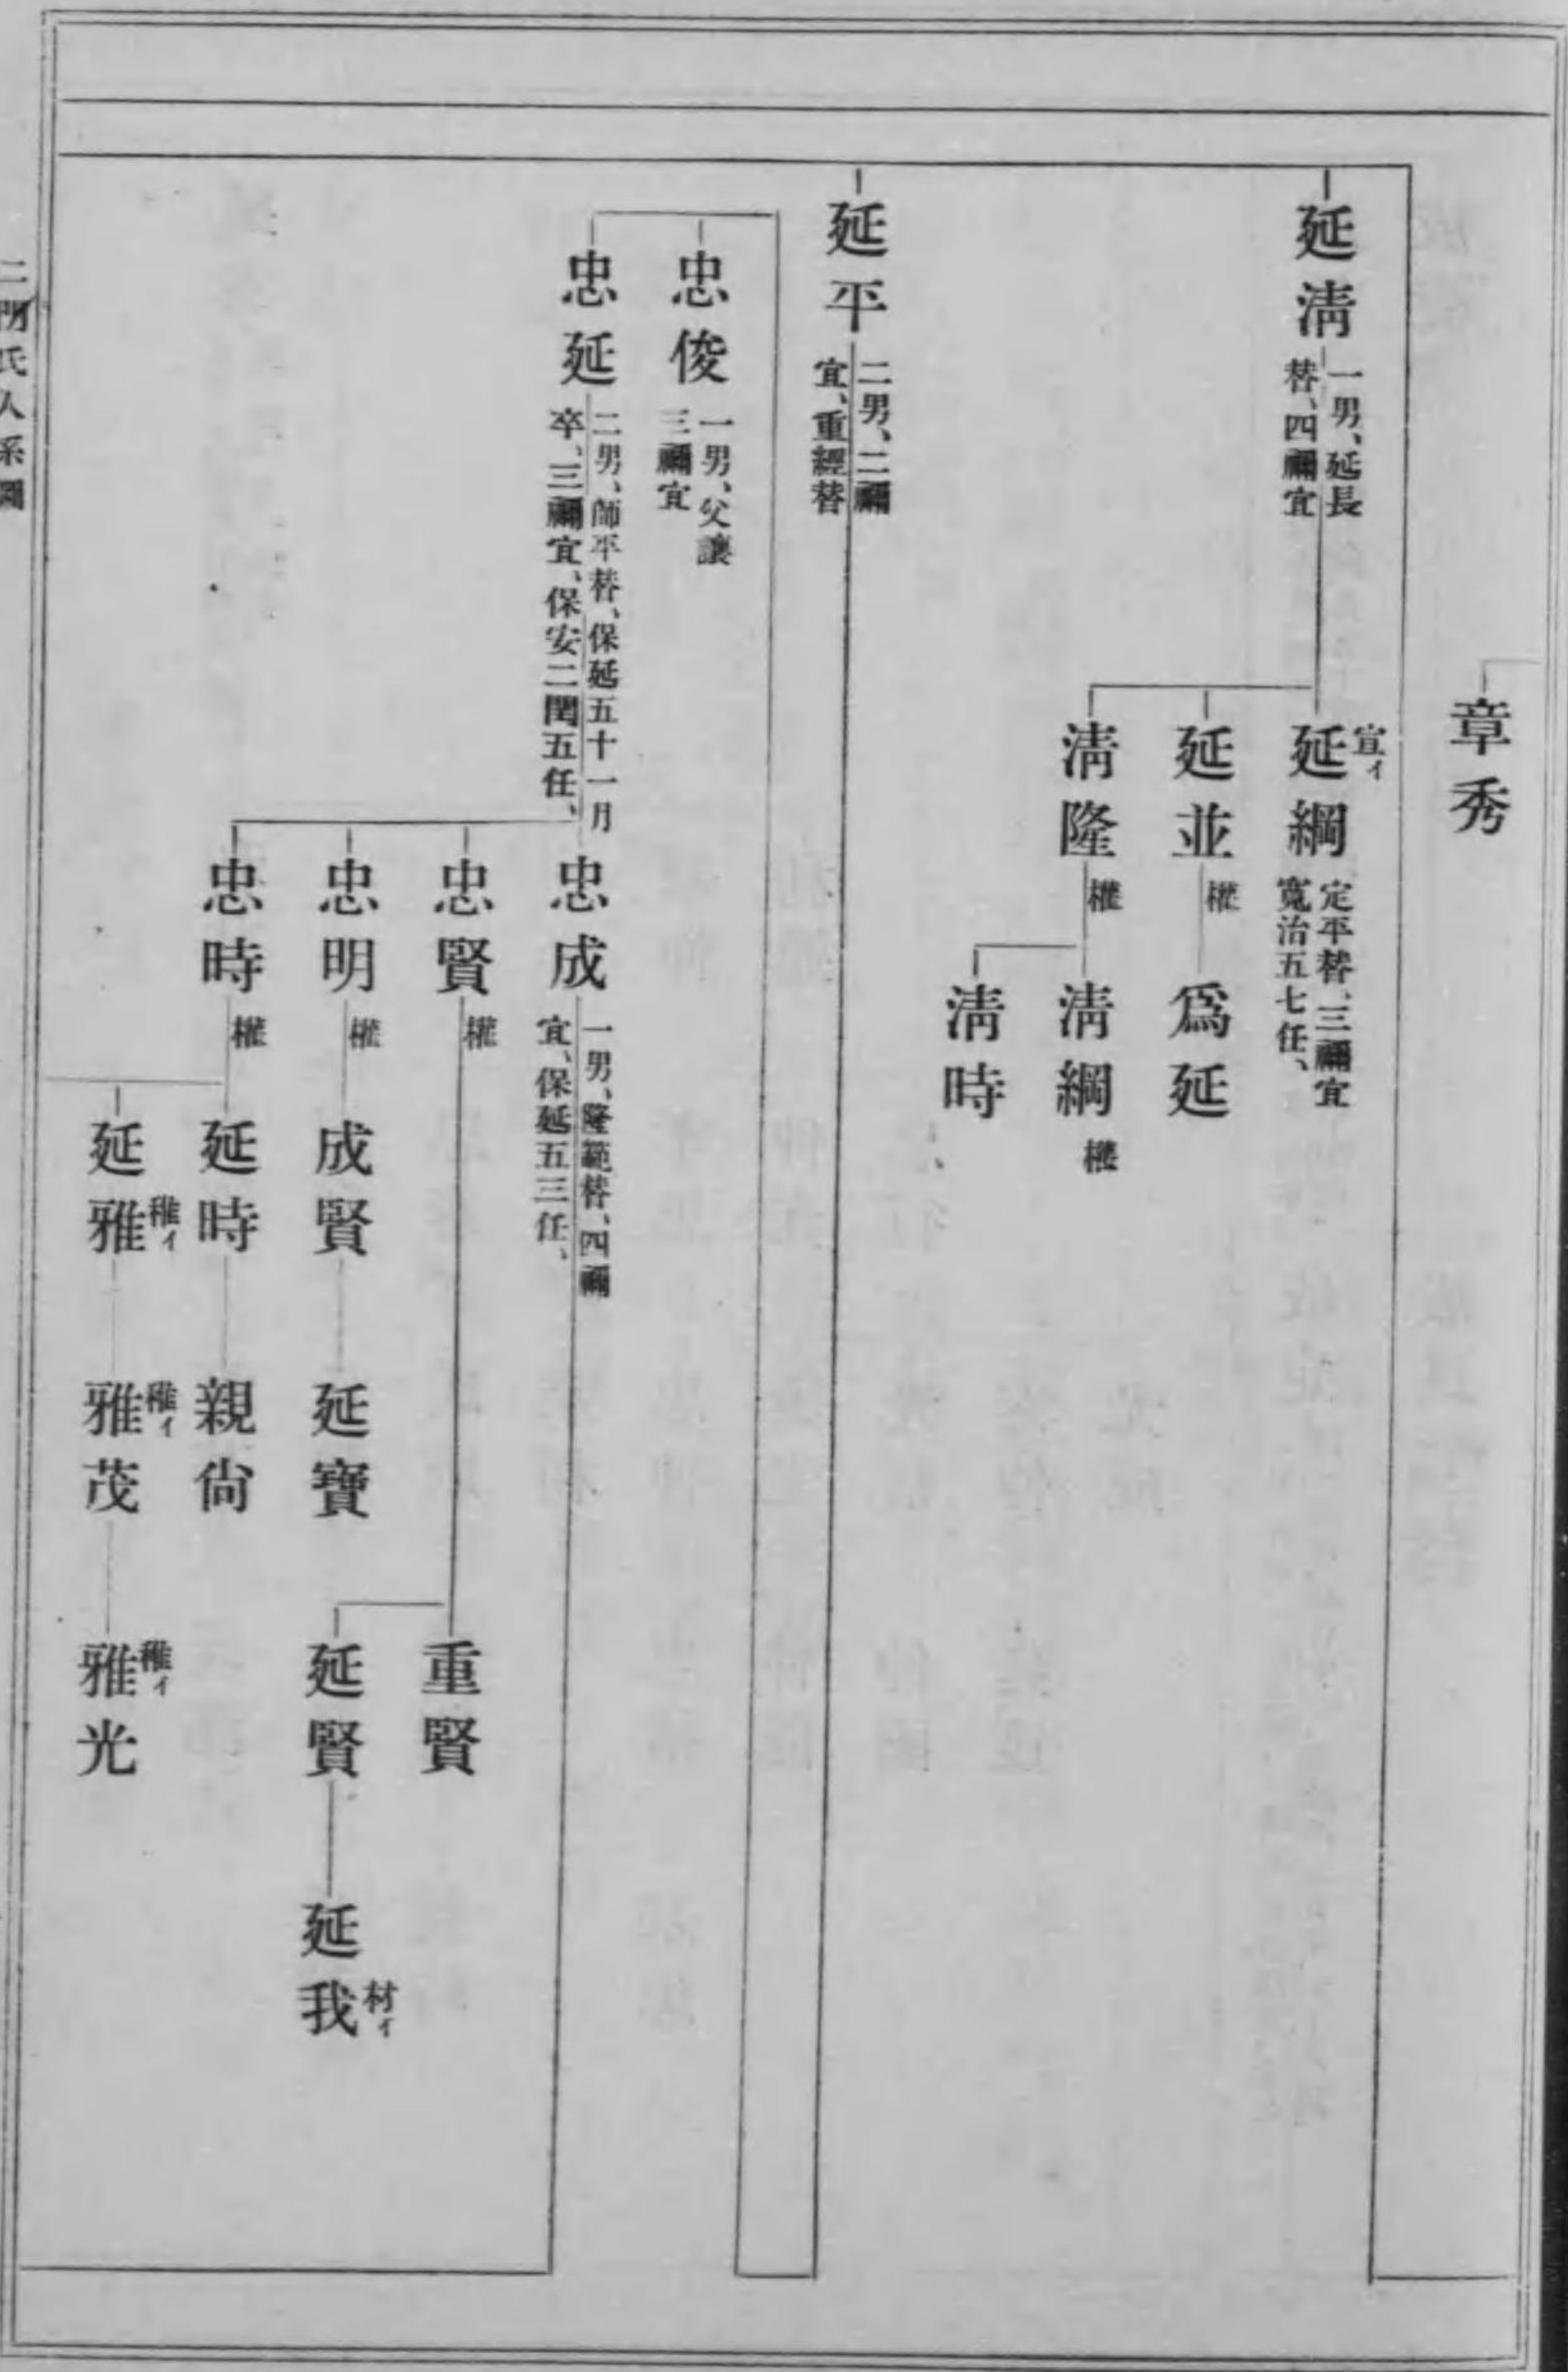 章秀
延淸
一男、延長
替、四禰宜
延綱
宣イ
定平替、三禰宜
寬治五七任、
延並
權
爲延
淸隆
權
淸綱
權
淸時
延平
二男、二禰
宜、重經替
忠俊
一男、父讓
三禰宜
忠延
二男、師平替、保延五十一月
卒、三禰宜、保安二閏五任、
忠成
一男、隆範替、四禰
宜、保延五三任、
忠賢
權
重賢
延賢
延我
材イ
忠明
權
成賢
延寶
忠時
權
延時
親尙
延雅
稚イ
雅茂
稚イ
雅光
稚イ
二門氏人系圖